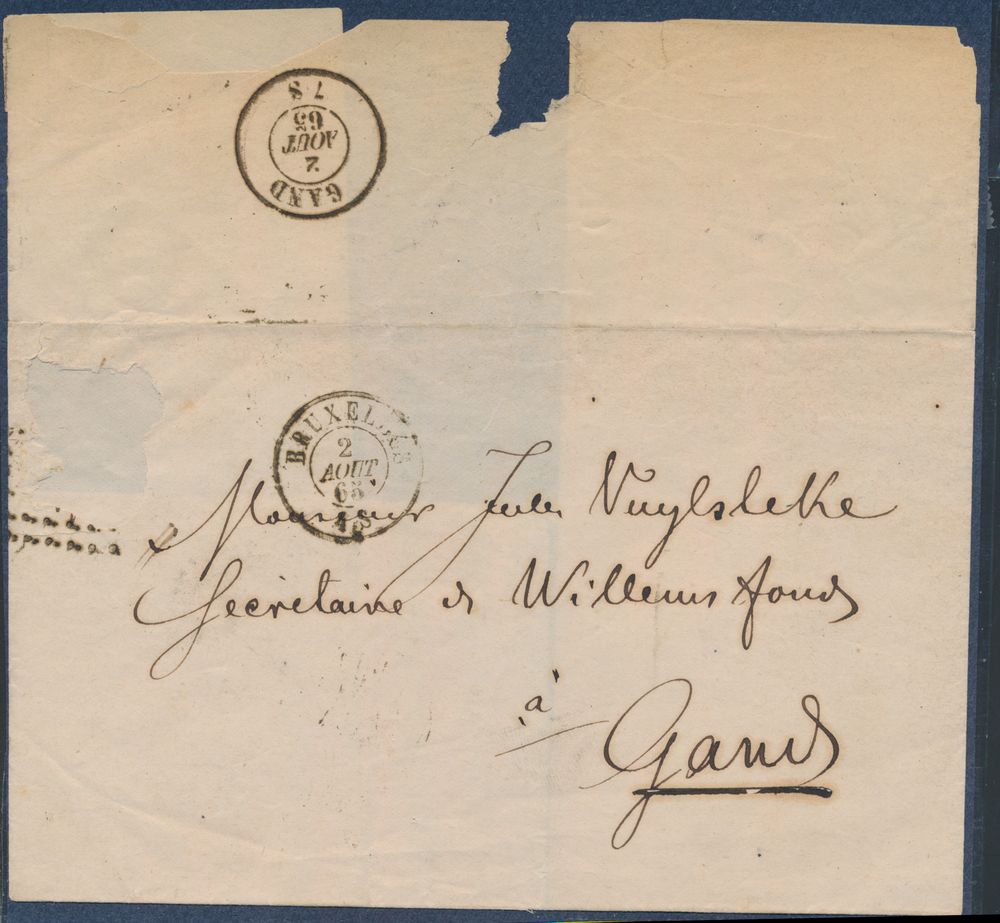 GAND
2
AOUT
65
7 S
BRUXELLES
2
AOUT
65
Monsieur Jules Vuylsteke
Secrétaire de Willems fonds
à
Gand